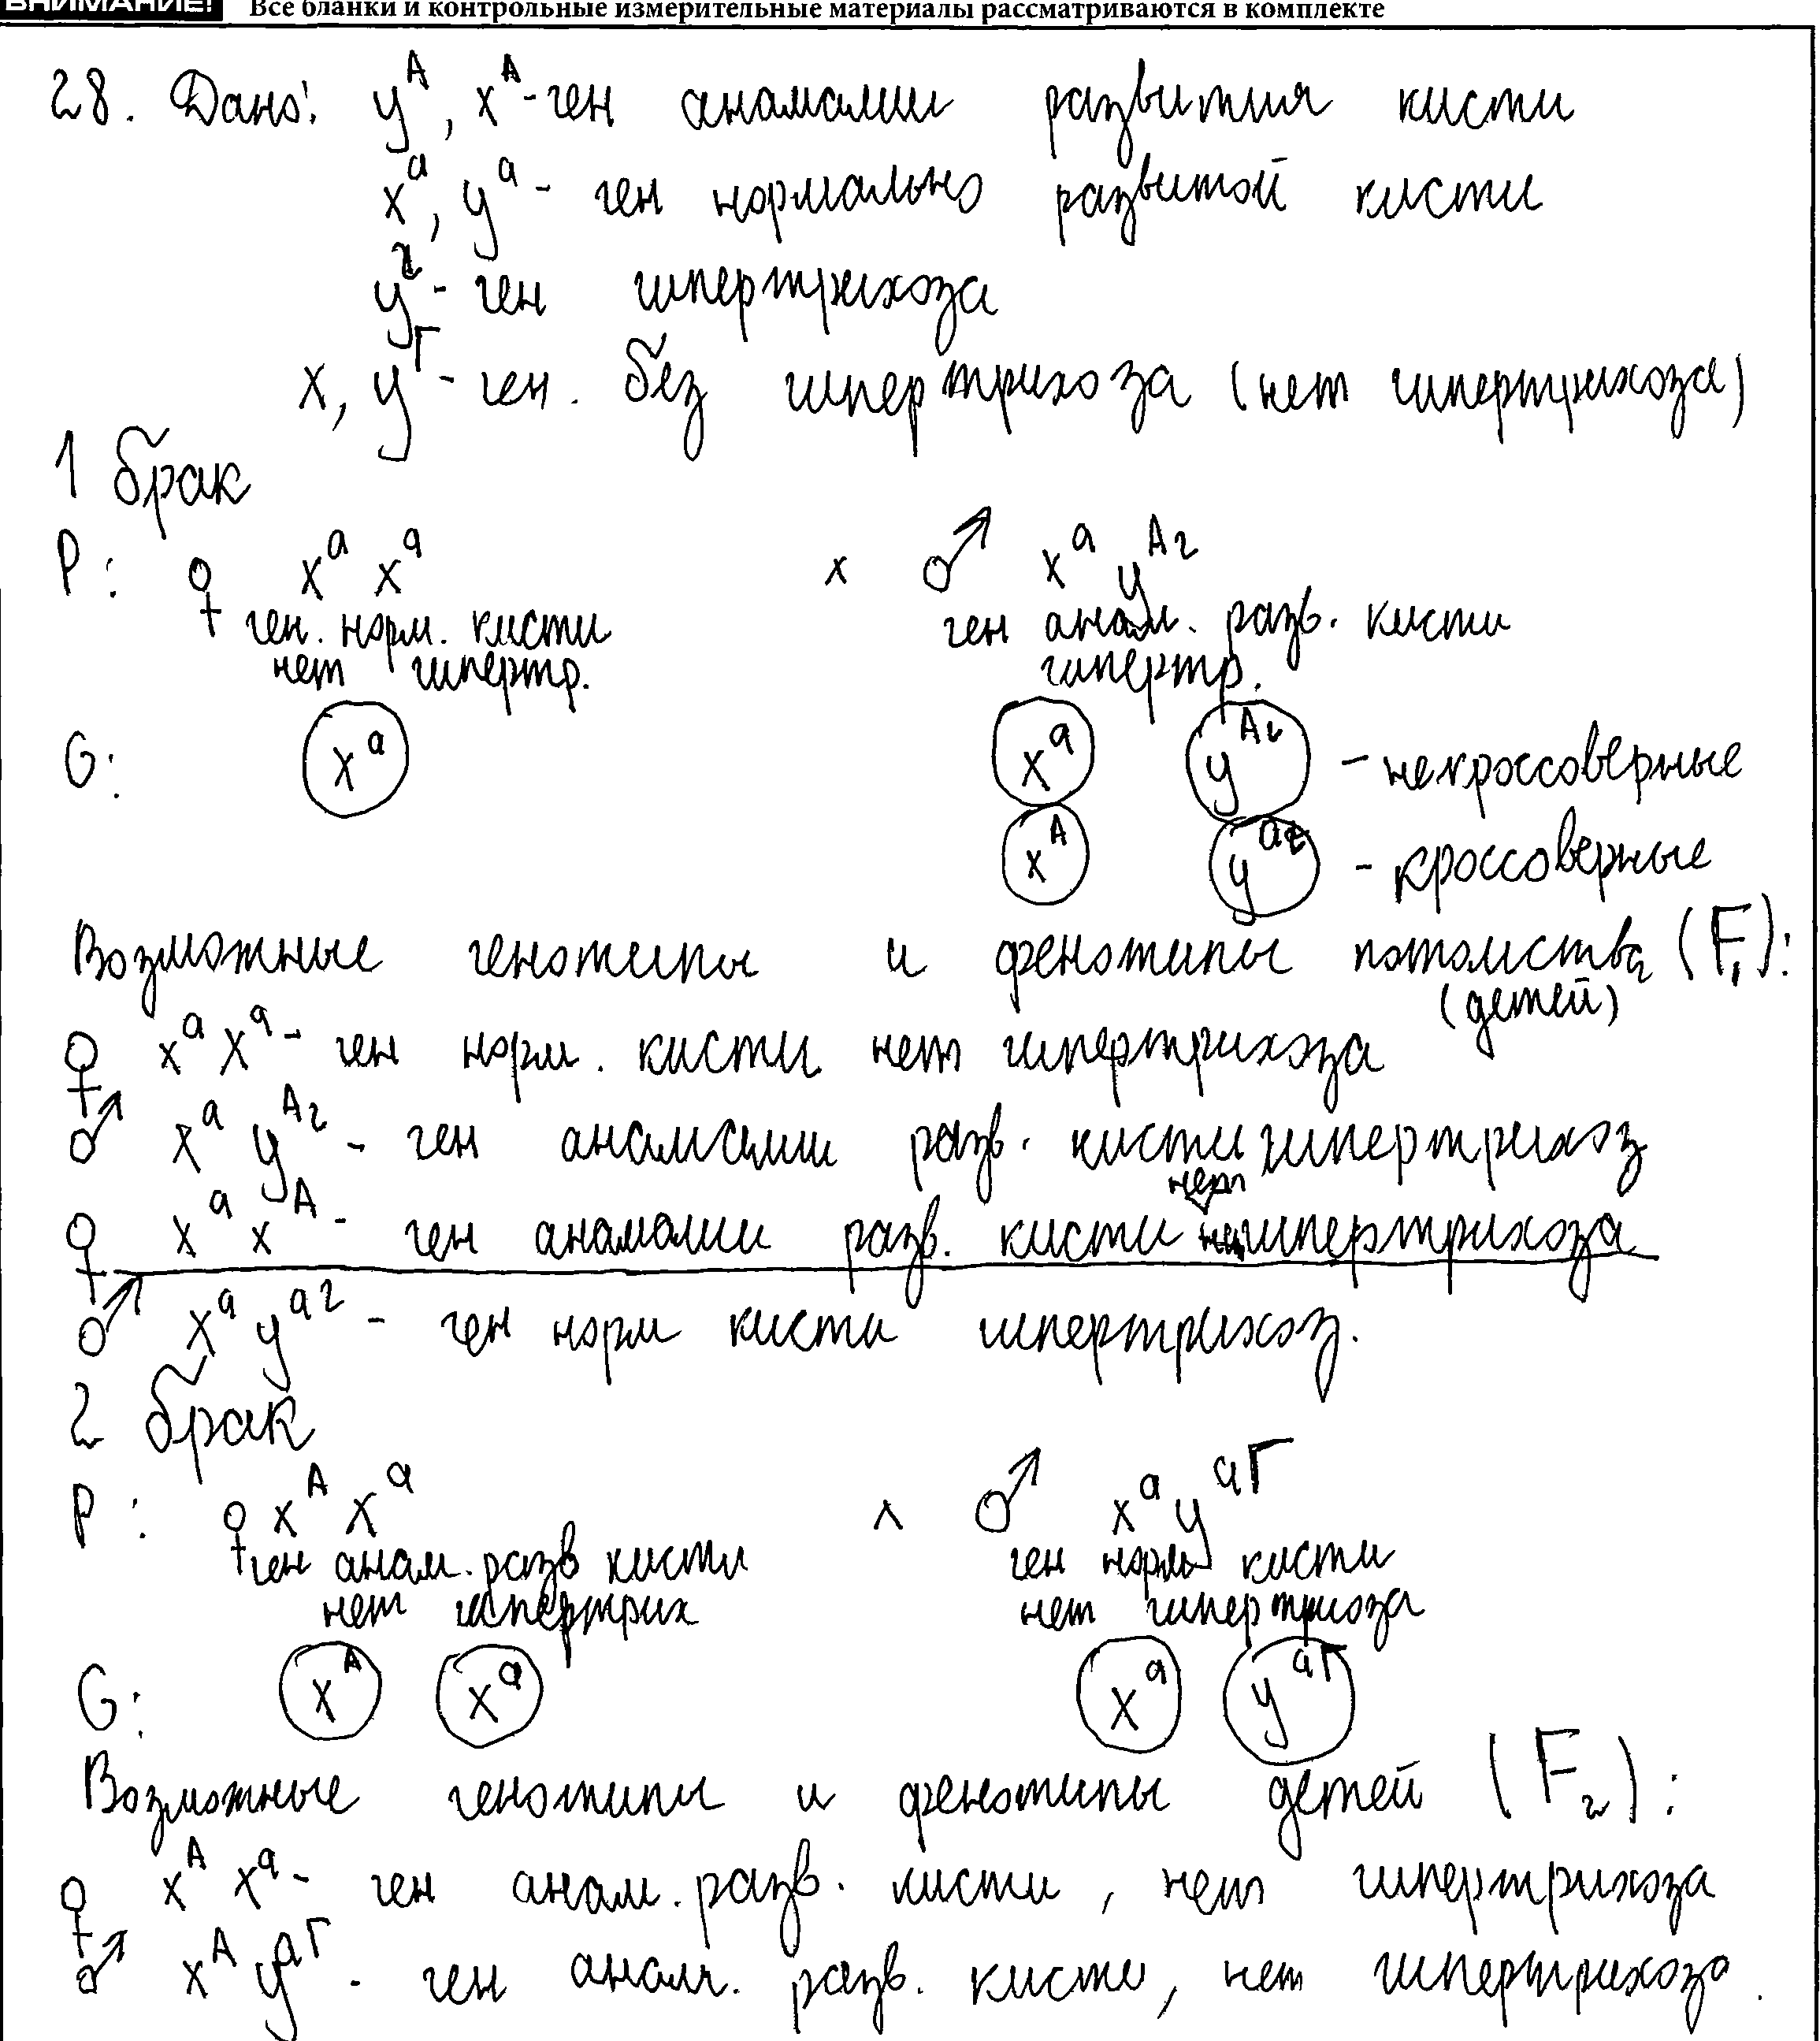 ВНИМАНИЕ! Все бланки и контрольные измерительные материалы рассматриваются в комплекте
28. Дано: y^A, x^A - ген анамалии развития кисти
x^a, y^a - ген нормально развитой кисти
y^г - ген гипертрихоза
x, y^Г - ген. без гипертрихоза (нет гипертрихоза)
1 брак
P: ♀ x^a x^a x ♂ x^a y^Aг
ген. норм. кисти ген анам. разв. кисти
нет гипертр. гипертр.
G: x^a x^a y^Aг - некроссоверные
x^A y^aг - кроссоверные
Возможные генотипы и фенотипы потомства (F₁):
(детей)
♀ x^a x^a - ген норм. кисти нет гипертрихоза
♂ x^a y^Aг - ген анамалии разв. кисти гипертрихоз
нет
♀ x^a x^A - ген анамалии разв. кисти гипертрихоза
♂ x^a y^aг - ген норм кисти гипертрихоз.
2 брак
P: ♀ x^A x^a x ♂ x^a y^aГ
ген анам. разв кисти ген норм кисти
нет гипертрих нет гипертриоза
G: x^A x^a x^a y^aГ
Возможные генотипы и фенотипы детей (F₂):
♀ x^A x^a - ген анам. разв. кисти, нет гипертрихоза
♂ x^A y^aГ - ген анам. разв. кисти, нет гипертрихоза.